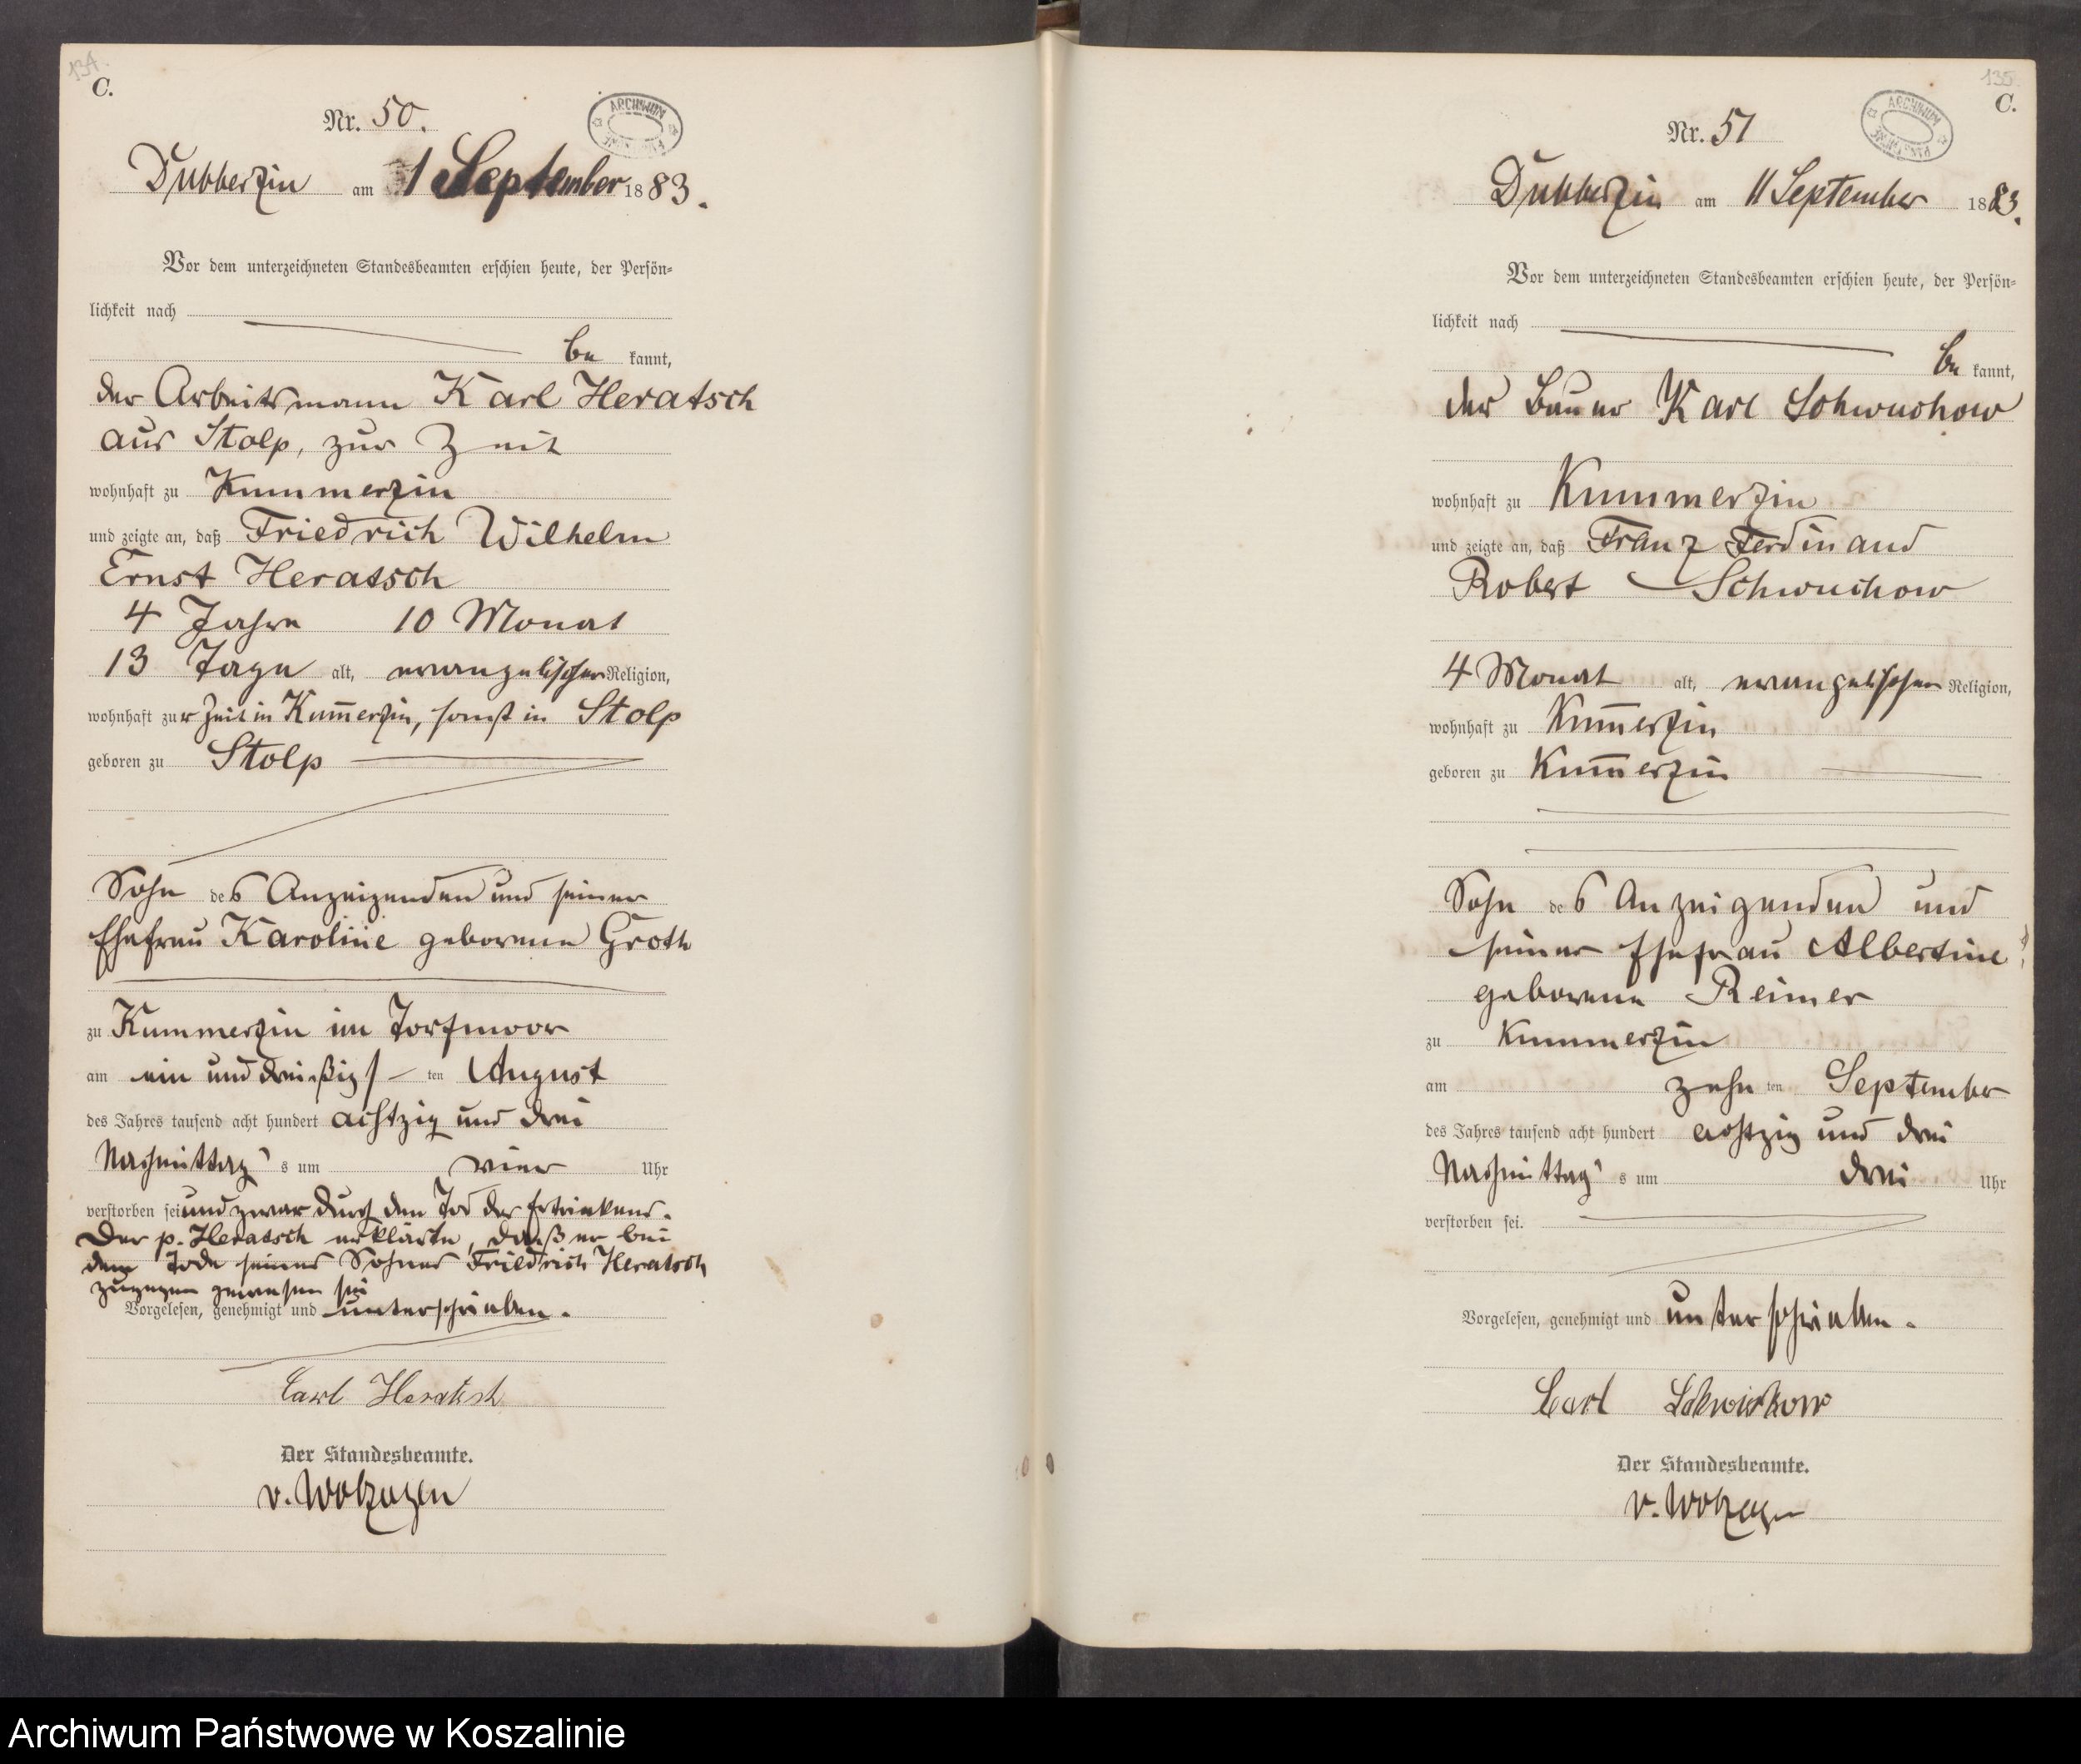 134.
C.
Nr. 50.
ARCHIWUM
Dubberzin am 1 September 1883.
Vor dem unterzeichneten Standesbeamten erschien heute, der Persön-
lichkeit nach
be kannt,
der Arbeitsmann Karl Heratsch
aus Stolp, zur Zeit
wohnhaft zu Kummerzin
und zeigte an, daß Friedrich Wilhelm
Ernst Heratsch
4 Jahre 10 Monat
13 Tage alt, evangelischer Religion,
wohnhaft zur Zeit in Kum̅erzin, sonst in Stolp
geboren zu Stolp
Sohn des Anzeigenden und seiner
Ehefrau Karoline geborene Groth
zu Kummerzin im Torfmoor
am ein und dreißigs ten August
des Jahres tausend acht hundert achtzig und drei
Nachmittag's um vier Uhr
verstorben sei und zwar durch den Tod des Ertrinkens.
Der p. Heratsch erklärte, daß er bei
dem Tode seines Sohnes Friedrich Heratsch
zugegen gewesen sei
Vorgelesen, genehmigt und unterschrieben.
Carl Heratsch
Der Standesbeamte.
v. Wolzogen
135.
C.
Nr. 51
ARCHIWUM
Dubberzin am 11 September 1883.
Vor dem unterzeichneten Standesbeamten erschien heute, der Persön-
lichkeit nach
be kannt,
der Bauer Karl Schwuchow
wohnhaft zu Kummerzin
und zeigte an, daß Franz Ferdinand
Robert Schwuchow
4 Monat alt, evangelischer Religion,
wohnhaft zu Kum̅erzin
geboren zu Kum̅erzin
Sohn des Anzeigenden und
seiner Ehefrau Albertine
geborene Reimer
zu Kummerzin
am zehn ten September
des Jahres tausend acht hundert achtzig und drei
Nachmittag's um drei Uhr
verstorben sei.
Vorgelesen, genehmigt und unterschrieben.
Carl Schwuchow
Der Standesbeamte.
v. Wolzogen
Archiwum Państwowe w Koszalinie